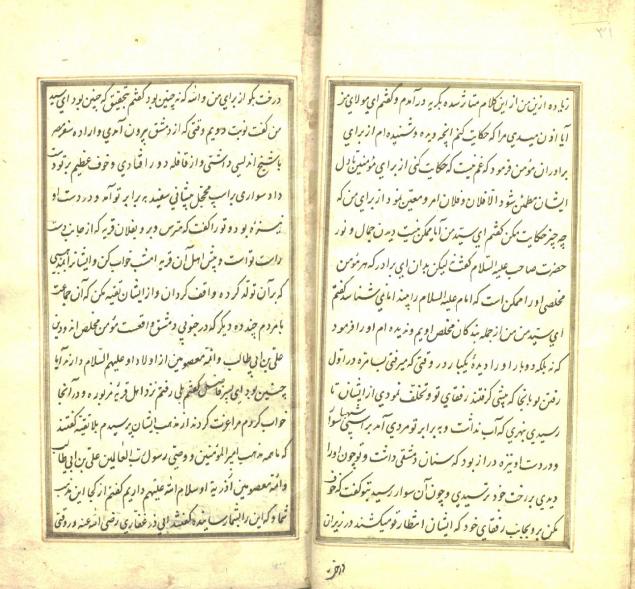 ۳۱
زیاده از ین من از این کلام متاثر شده بگریه درآمدم و گفتم ای مولای من
آیا اذن میدهی مرا که حکایت کنم آنچه دیده و شنیده ام از برای
برادران مؤمن فرمود که غم نیست که حکایت کنی از برای مؤمنین تا دل
ایشان مطمئن شود الا فلان و فلان امر و معین نمود از برای من که
چه چیز حکایت نکن گفتم ای سید من آیا ممکن نیست دیدن جمال و نور
حضرت صاحب علیه السلام گفت نه لیکن بدان ای برادر که هر مؤمن
مخلصی او را ممکن است که امام علیه السلام را بیند اما نمی شناسد گفتم
ای سید من من از جمله بندگان مخلص اویم و ندیده ام او را فرمود
که نه بلکه دوبار او را دیدهٔ یکبار در وقتی که میرفتی بسامره در اول
رفتن تو بآنجا که پیشی گرفتند رفقای تو و تخلف نمودی از ایشان تا
رسیدی بنهری که آب نداشت و به برابر تو مردی آمد بر اسب شهبا سوار
و در دست او نیزه دراز بود که سنان دمشقی داشت و تو چون او را
دیدی بر رخت خود ترسیدی و چون آن سوار رسید بتو گفت که خوف
مکن برو بجانب رفقای خود که ایشان انتظار تو میکشند در زیر آن
درخت
درخت بگو از برای من والله که نه چنین بود گفتم بتحقیق که چنین بود ای سید
من گفت نوبت دویم وقتی که از دمشق بیرون آمدی و اراده سفر مصر
با شیخ اندلسی داشتی و از قافله دور افتادی و خوف عظیم بر تو دست
داد سواری بر اسب محجل پیشانی سفید به برابر تو آمد و در دست او
نیزه بود و تو را گفت که مترس و برو بفلان قریه که از جانب دست
راست تو است و پیش اهل آن قریه امشب خواب کن و ایشانرا بمذهبی
که بر آن تولد کرده واقف گردان و از ایشان تقیه مکن که آن جماعت
با مردم چند ده دیگر که در جنوبی دمشق واقعست مؤمن مخلص اند و دین
علی بن ابی طالب و ائمه معصومین از اولاد او علیهم السلام دارند آیا
چنین بود ای پسر فاضل گفتم بلی رفتم نزد اهل قریه مزبوره و در آنجا
خواب کردم مرا عزت کردند از مذهب ایشان پرسیدم بلا تقیه گفتند
که ما همه مذهب امیر المؤمنین و وصی رسول رب العالمین علی بن ابی طالب
و ائمه معصومین از ذریه او سلام الله علیهم داریم گفتم از کجا این مذهب
شما و که این را بشما رسانیده گفتند ابی ذر غفاری رضی الله عنه در وقتی